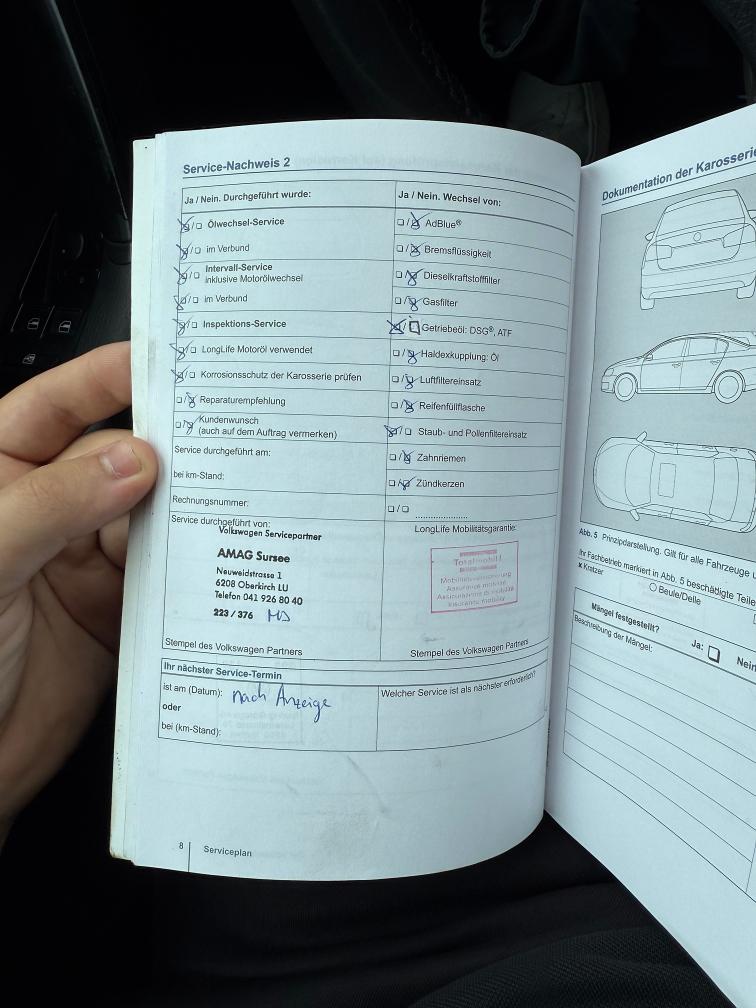 Service-Nachweis 2
Ja / Nein. Durchgeführt wurde:
Ölwechsel-Service
im Verbund
Intervall-Service
inklusive Motorölwechsel
im Verbund
Inspektions-Service
LongLife Motoröl verwendet
Korrosionsschutz der Karosserie prüfen
Reparaturempfehlung
Kundenwunsch
(auch auf dem Auftrag vermerken)
Service durchgeführt am:
bei km-Stand:
Rechnungsnummer:
Ja / Nein. Wechsel von:
AdBlue®
Bremsflüssigkeit
Dieselkraftstofffilter
Gasfilter
Getriebeöl: DSG®, ATF
Haldexkupplung: Öl
Luftfiltereinsatz
Reifenfüllflasche
Staub- und Pollenfiltereinsatz
Zahnriemen
Zündkerzen
Service durchgeführt von:
Volkswagen Servicepartner
AMAG Sursee
Neuweidstrasse 1
6208 Oberkirch LU
Telefon 041 926 80 40
223 / 376
Stempel des Volkswagen Partners
LongLife Mobilitätsgarantie:
Totalmobil!
Mobilitätsversicherung
Assurance mobilité
Assicurazione di mobilità
Insurance mobility
Stempel des Volkswagen Partners
Ihr nächster Service-Termin
ist am (Datum): nach Anzeige
oder
bei (km-Stand):
Welcher Service ist als nächster erforderlich?
8 Serviceplan
Dokumentation der Karosserie
Abb. 5 Prinzipdarstellung. Gilt für alle Fahrzeuge
Ihr Fachbetrieb markiert in Abb. 5 beschädigte Teile
x Kratzer
Beule/Delle
Mängel festgestellt?
Ja:
Nein
Beschreibung der Mängel: